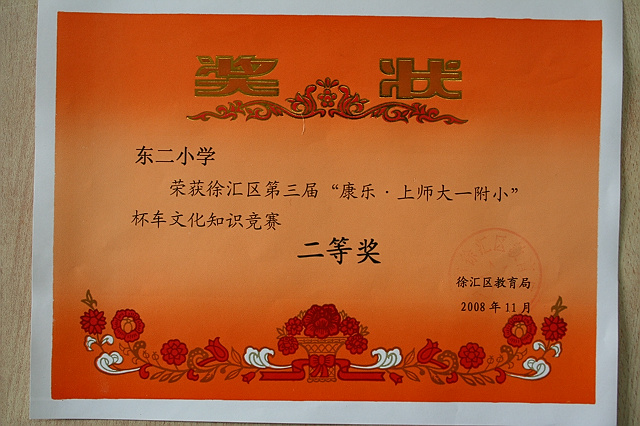 奖状
东二小学
荣获徐汇区第三届“康乐·上师大一附小”
杯车文化知识竞赛
二等奖
徐汇区教育局
2008年11月